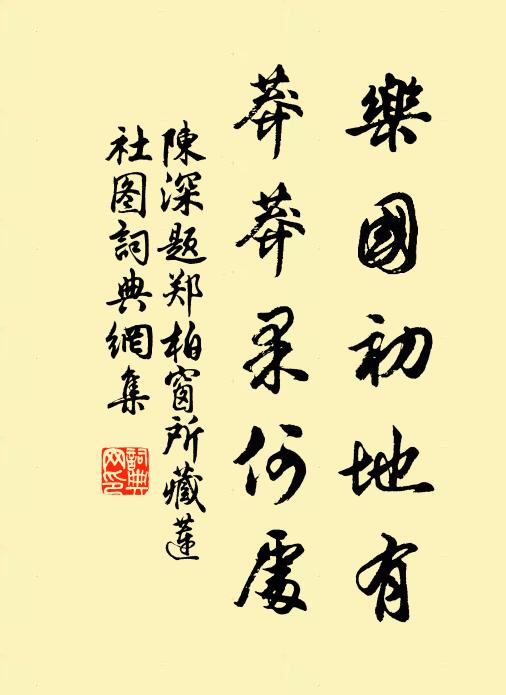 樂國初地有
莽莽果何處
陳深題郑柏窗所藏蓮
社图詞典網集
詞典网印